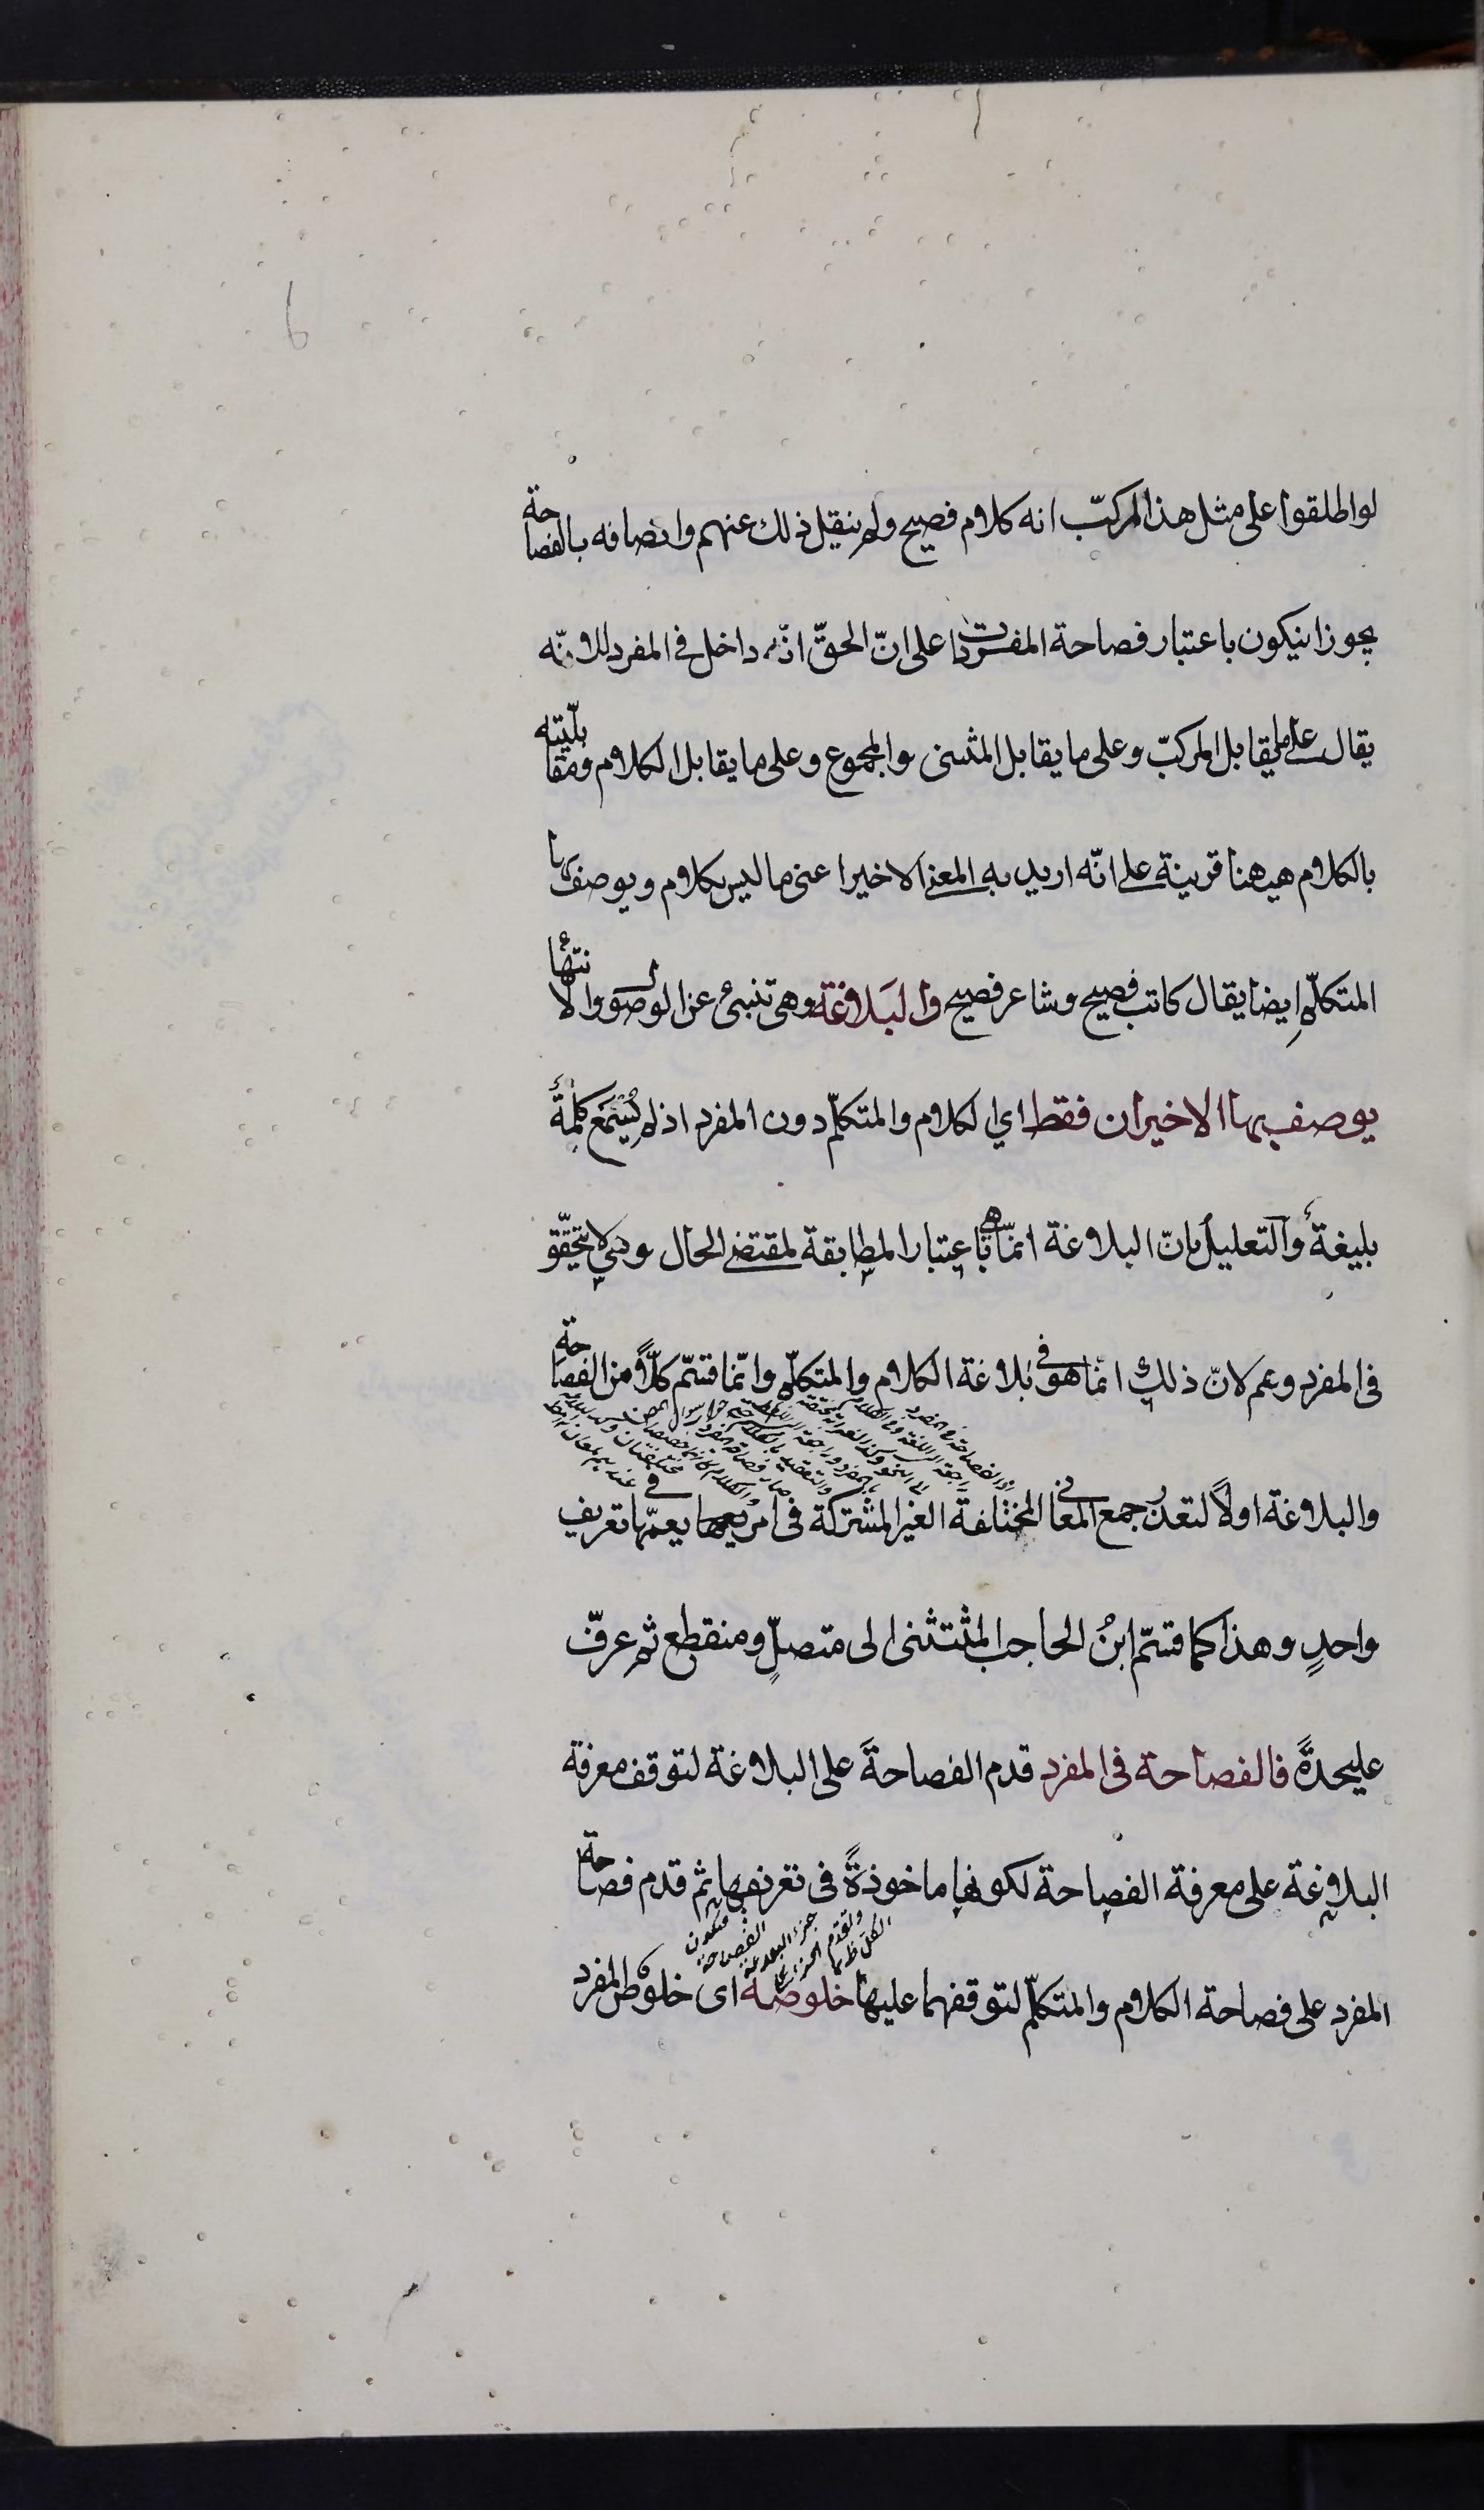 لو اطلقوا على مثل هذا المركّب انه كلام فصيح ولم ينقل ذلك عنهم واتصافه بالفصاحة
يجوز انيكون باعتبار فصاحة المفردات على انّ الحقّ انّه داخل فى المفرد لانّه
يقال على ما يقابل المركبّ وعلى ما يقابل المثنى والمجموع وعلى ما يقابل الكلام ومقابلته
بالكلام هيهنا قرينة على انّه اريد به المعنى الاخير اعنى ما ليس بكلام ويوصف بها
المتكلّم ايضا يقال كاتب فصيح وشاعر فصيح والبَلاغة وهى تنبئ عن الوصول والانتهاء
يوصف بها الاخيران فقط اي الكلام والمتكلّم دون المفرد اذ لم يُسْمَع كلمةٌ
بليغةٌ والتعليل بانّ البلاغة انمّا هى باعتبار المطابقة لمقتضى الحال وهى لا تتحقّق
فى المفرد وهم لانّ ذلك انما هو فى بلاغة الكلام والمتكلّم وانّما قسّم كلّاً من الفصاحة
والبلاغة اولاً لتعذّر جمع المعانى المختلفة الغير المشتركة فى امر يعمها فى تعريف
واحدٍ وهذا كما قسّم ابنُ الحاجب المثتثنى الى متصلٍ ومنقطع ثم عرفّ
كلا عليحدةً فالفصاحة فى المفرد قدم الفصاحةَ على البلاغة لتوقف معرفة
البلاغة على معرفة الفصاحة لكونها ماخوذةً فى تعريفها ثم قدم فصاحة
المفرد على فصاحة الكلام والمتكلّم لتوقفهما عليها خلوصه اى خلوص المفرد